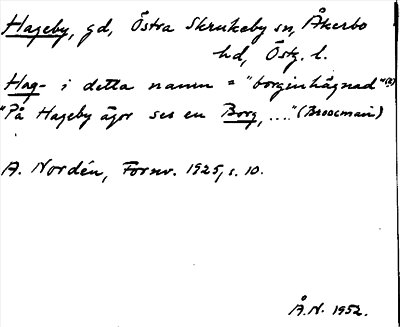 Hageby, gd, Östra Skrukeby sn, Åkerbo
hd, Östg. l.
Hag- i detta namn = "borginhägnad"
"På Hageby ägor ses en Borg, ...." (Broocman)
A. Nordén, Fornv. 1925, s. 10.
Å.N. 1952.